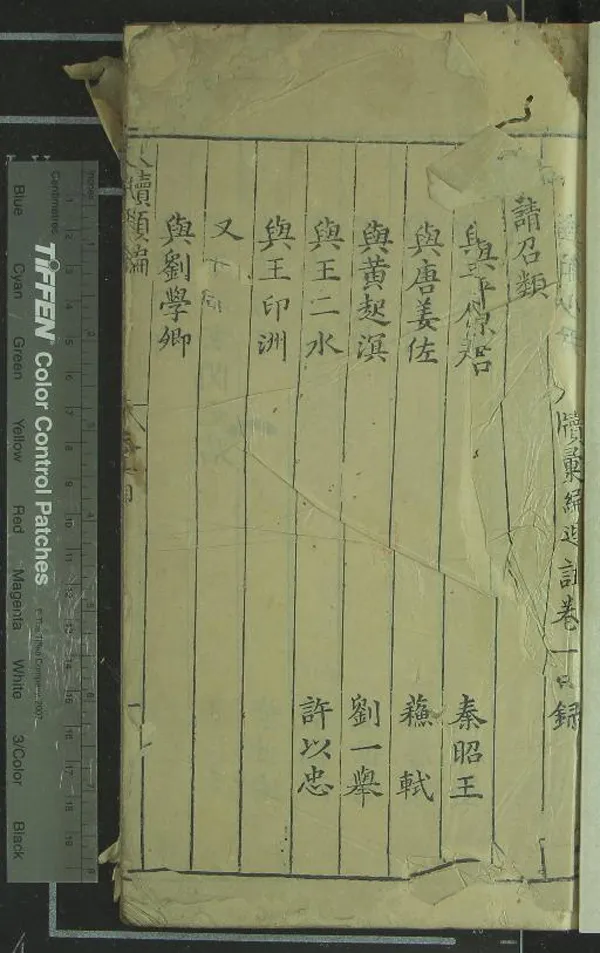 牘彙編 註卷一目錄
請召類
與平原君 秦昭王
與唐姜佐 蘇軾
與黃起溟 劉一舉
與王二水 許以忠
與王印洲
又
與劉學卿
牘類編
TIFFEN Color Control Patches
© The Tiffen Company, 2007
Centimetres
Inches
Blue Cyan Green Yellow Red Magenta White 3/Color Black